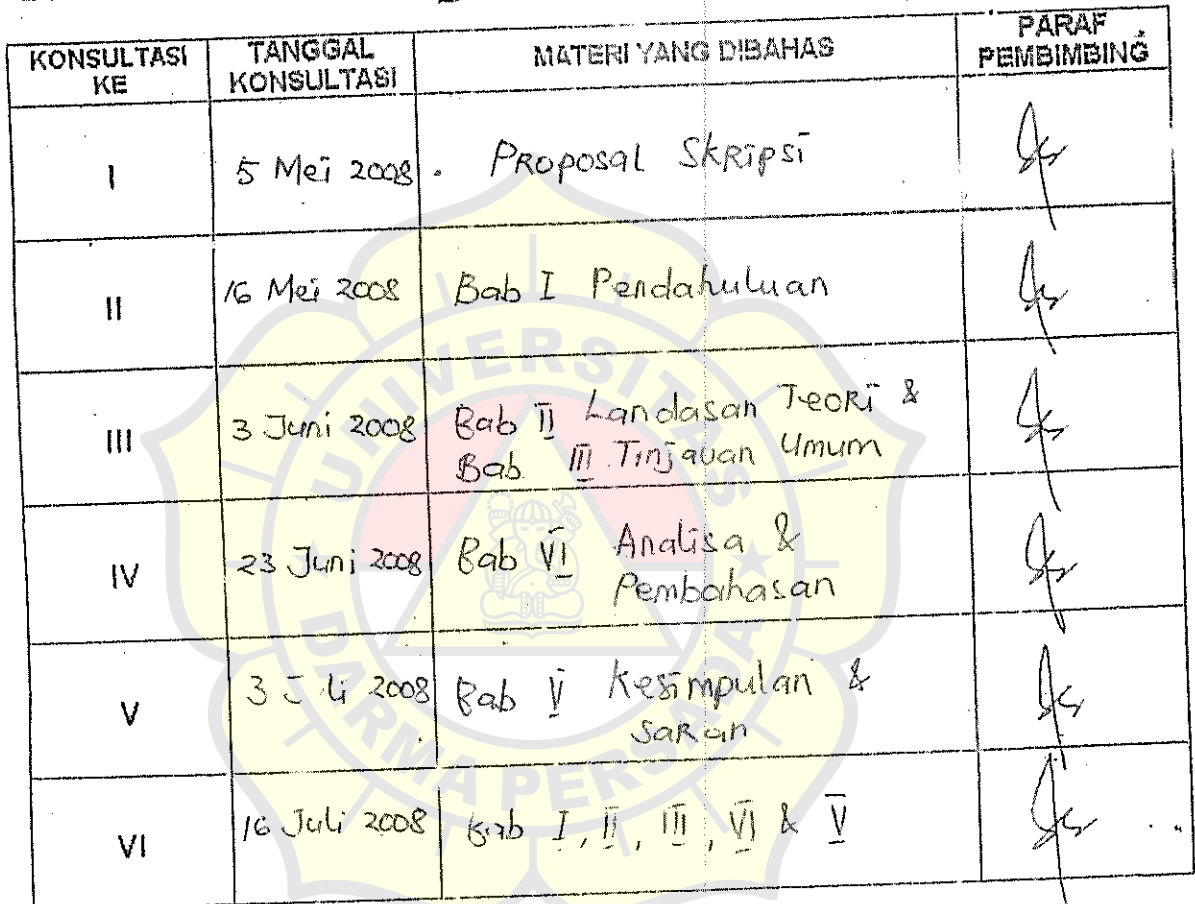 KONSULTASI KE
TANGGAL KONSULTASI
MATERI YANG DIBAHAS
PARAF PEMBIMBING
I
5 Mei 2008
Proposal Skripsi
II
16 Mei 2008
Bab I Pendahuluan
III
3 Juni 2008
Bab II Landasan Teori &
Bab III Tinjauan Umum
IV
23 Juni 2008
Bab VI Analisa &
Pembahasan
V
3 Juli 2008
Bab V Kesimpulan &
Saran
VI
16 Juli 2008
Bab I, II, III, VI & V
UNIVERSITAS
DARMA PERSADA